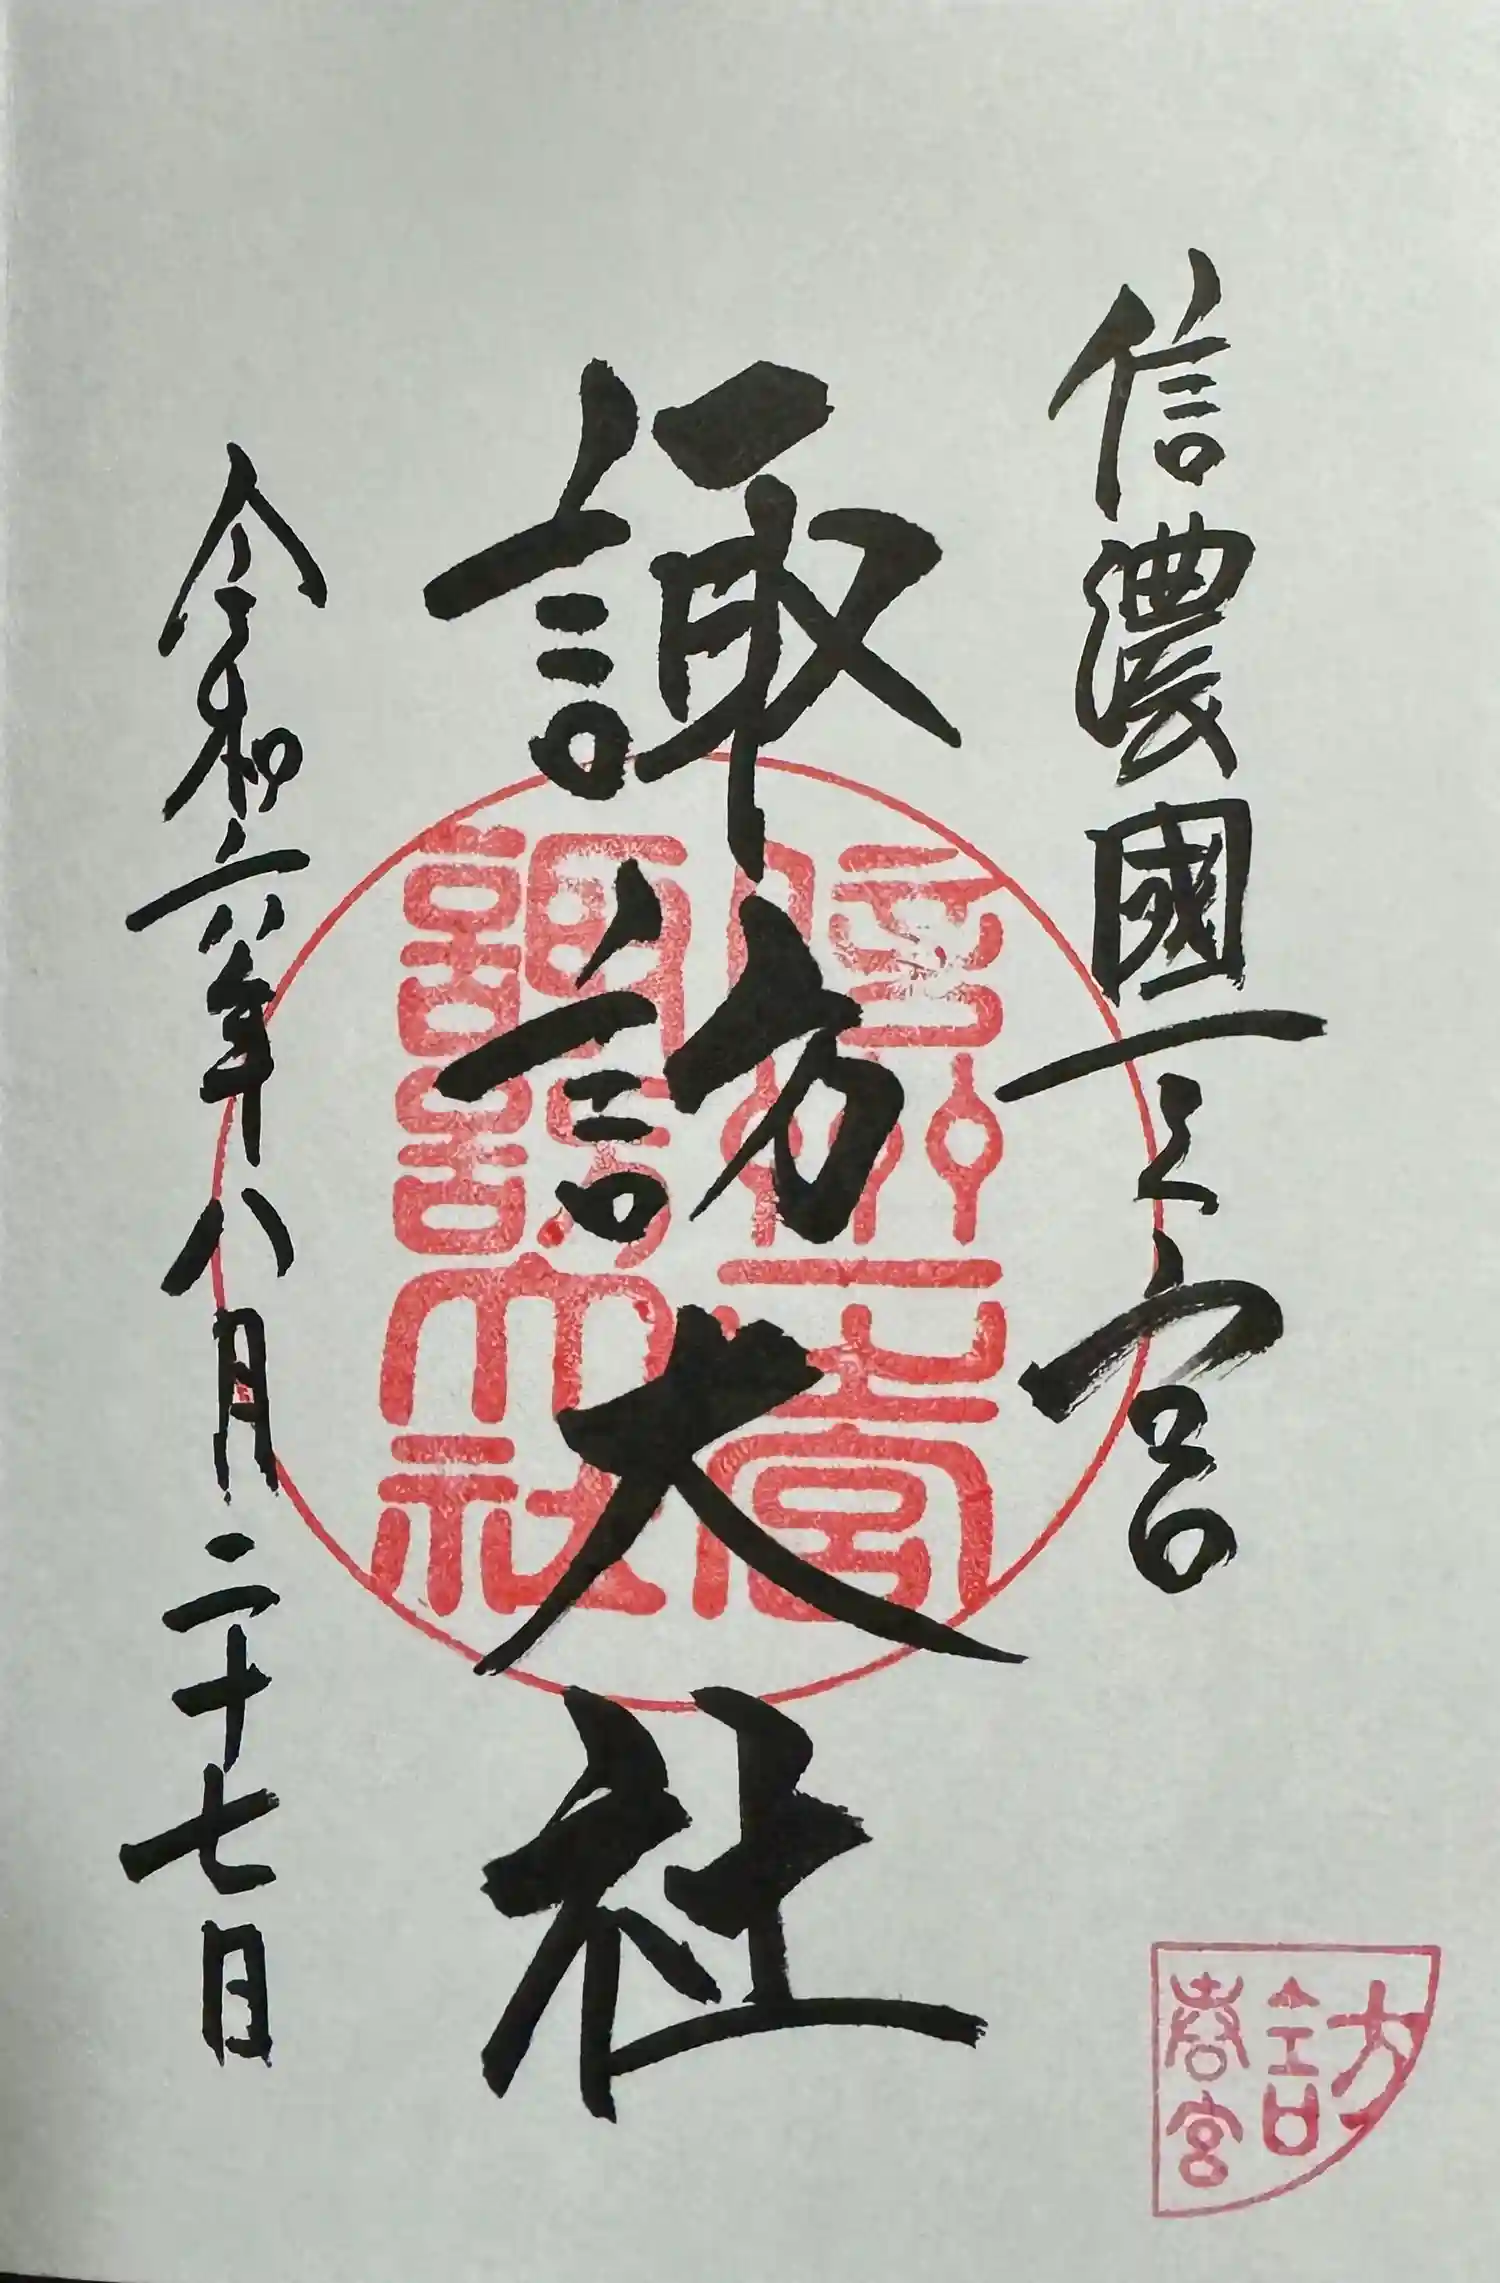 信濃國一之宮
諏訪大社
令和六年八月二十七日
信州一之宮
諏訪大社
訪
春宮